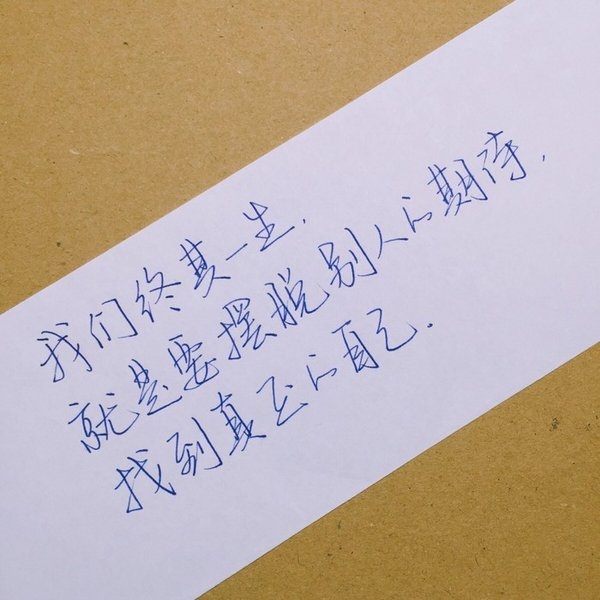 我们终其一生，
就是要摆脱别人的期待，
找到真正的自己。